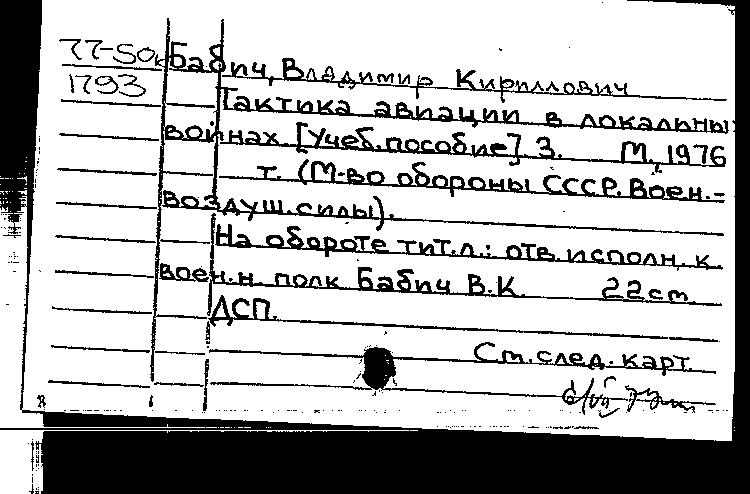 77-50к Бабич, Владимир Кириллович
1793
Тактика авиации в локальны
войнах [Учеб.пособие] 3. М., 1976
т. (М-во обороны СССР. Воен.-
воздуш.силы).
На обороте тит.л.: отв.исполн. к.
воен.н. полк Бабич В.К. 22 cm
ДСП.
См.след.карт.